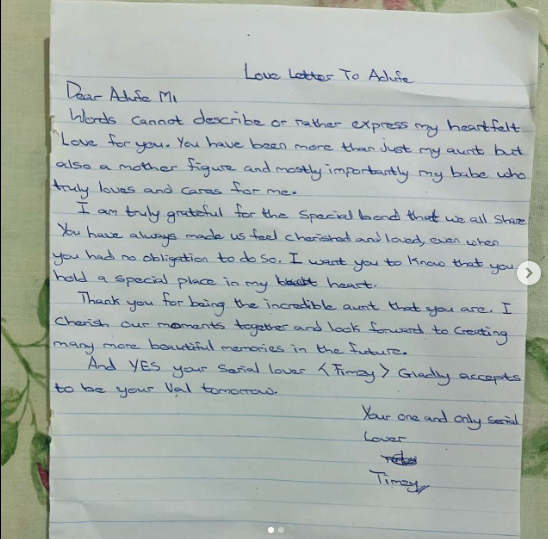 Love Letter To Adufe
Dear Adufe Mi
Words cannot describe or rather express my heartfelt
Love for you. You have been more than just my aunt but
also a mother figure and mostly importantly my babe who
truly loves and cares for me.
I am truly grateful for the special bond that we all share
You have always made us feel cherished and loved, even when
you had no obligation to do so. I want you to know that you
hold a special place in my heart.
Thank you for being the incredible aunt that you are. I
cherish our moments together and look forward to creating
many more beautiful memories in the future.
And YES your serial lover <Timzy> Gladly accepts
to be your Val tomorrow.
Your one and only serial
Lover
Timzy